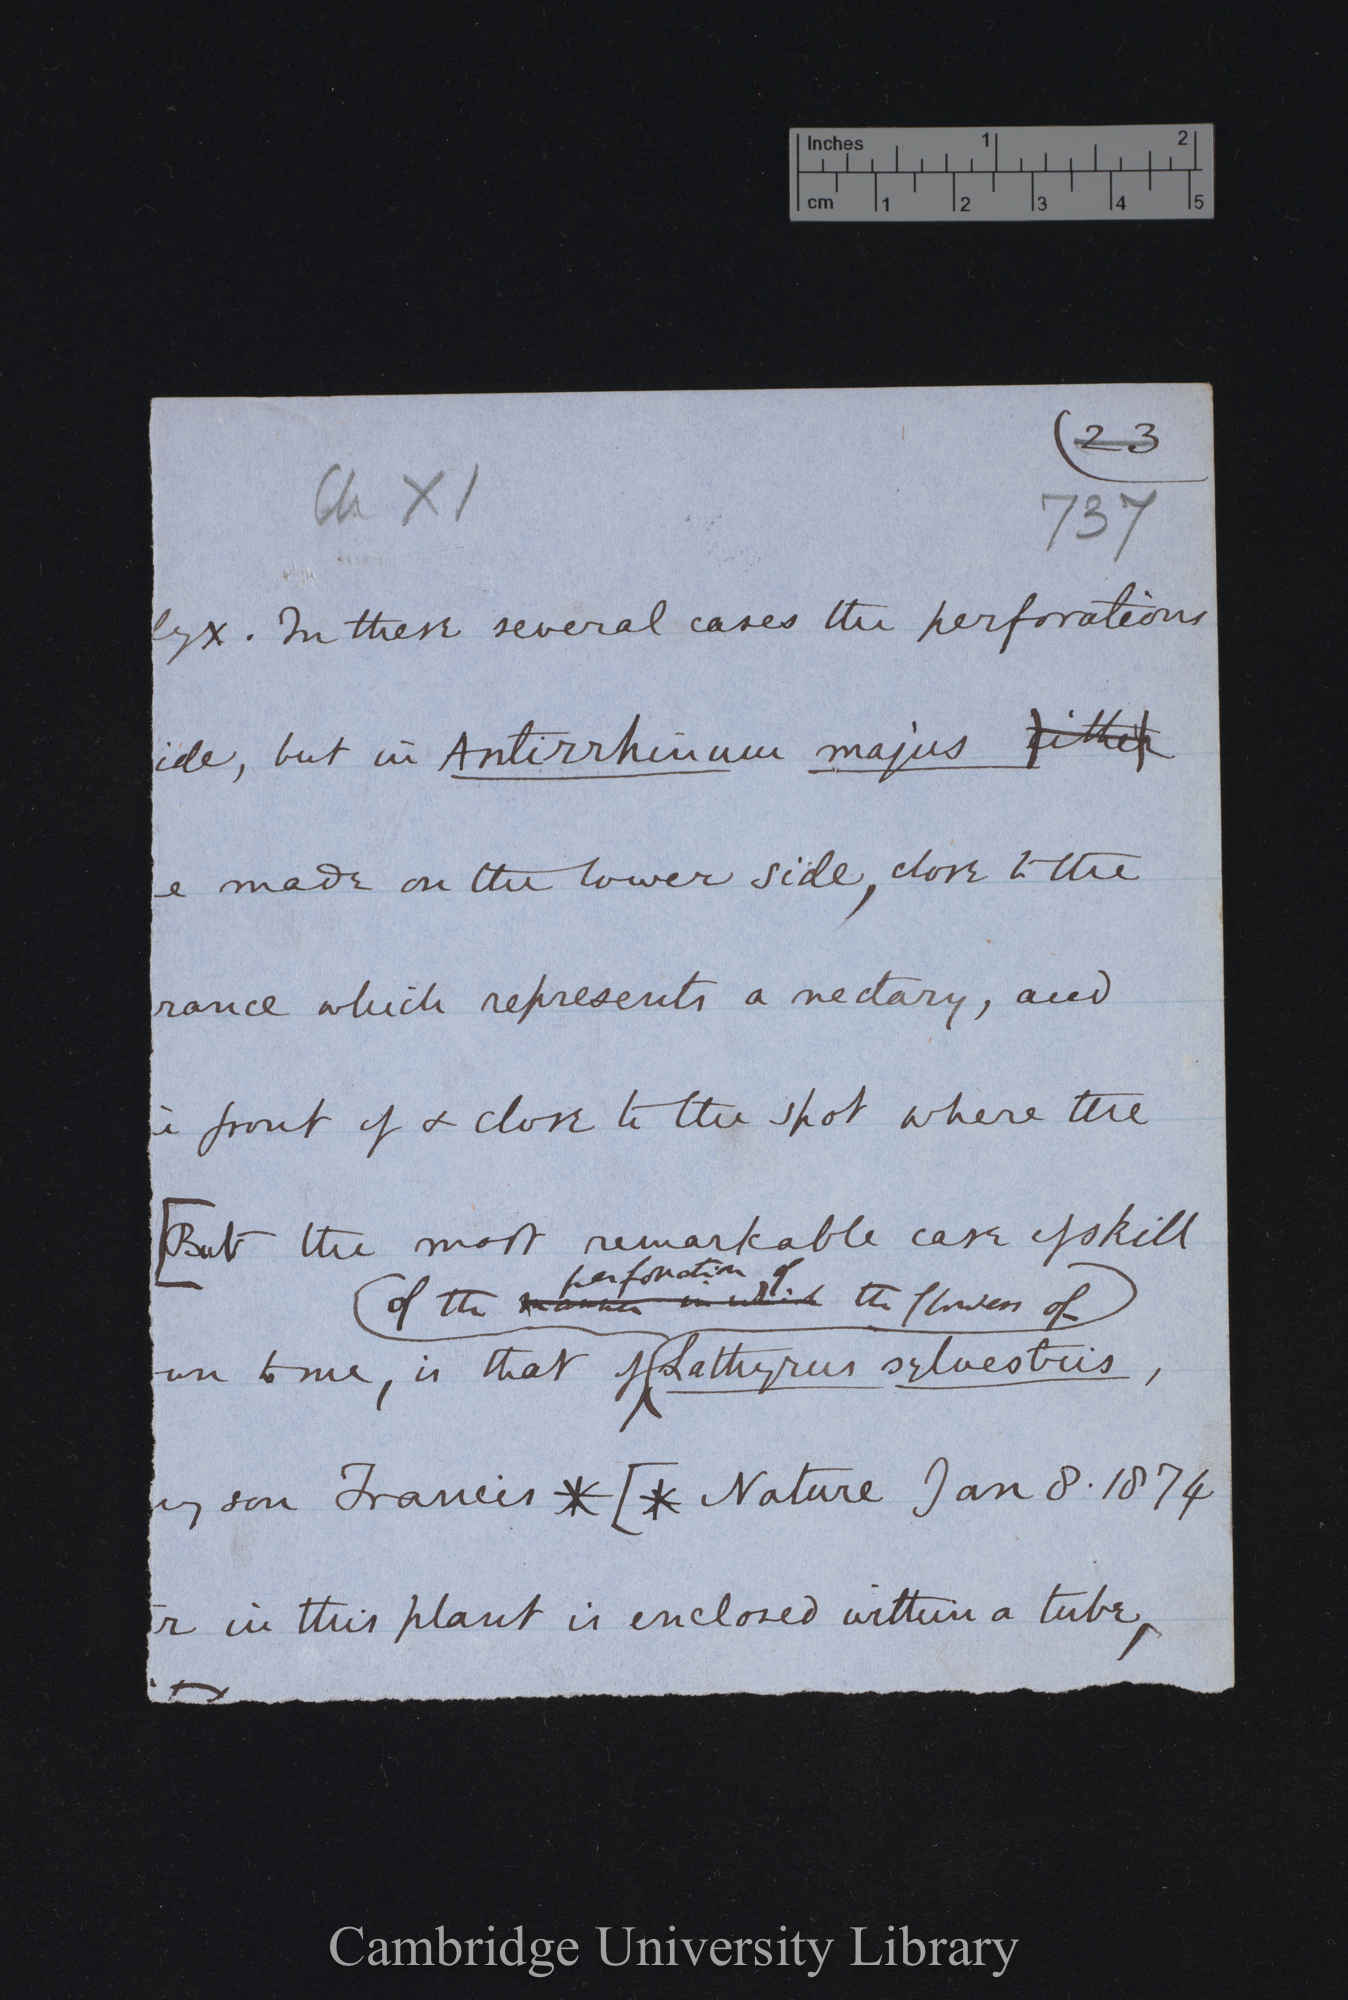 Inches 1 2
cm 1 2 3 4 5
(23
Ch XI
737
lyx. In these several cases the perforations
ide, but in Antirrhinum majus either
e made on the lower side, close to the
rance which represents a nectary, and
front of & close to the spot where the
[But the most remarkable case of skill
perforation of
(of the manner in which the flowers of)
wn to me, is that of Lathyrus sylvestris,
my son Francis * [* Nature Jan 8. 1874
r in this plant is enclosed within a tube,
Cambridge University Library